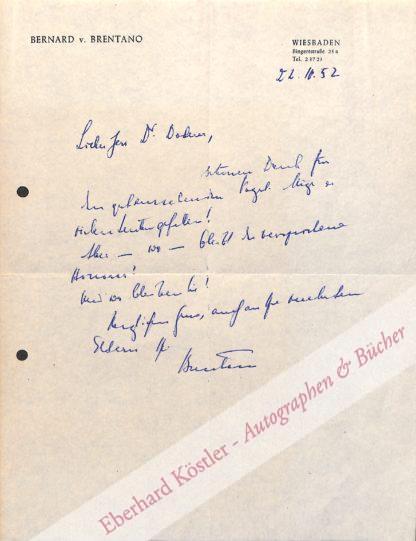 BERNARD v. BRENTANO
WIESBADEN
Bingertstraße 25 a
Tel. 2 37 23
Lieber Herr Dr.
schönen Dank für
Vogel. Möge er
vielen Leuten gefallen!
Aber — wo — bleibt das versprochene
Honorar?
Und wo bleiben Sie!
Herzlichen Gruss, auch an Ihre verehrten
Eltern Ihr
Brentano
Eberhard Köstler - Autographen & Bücher